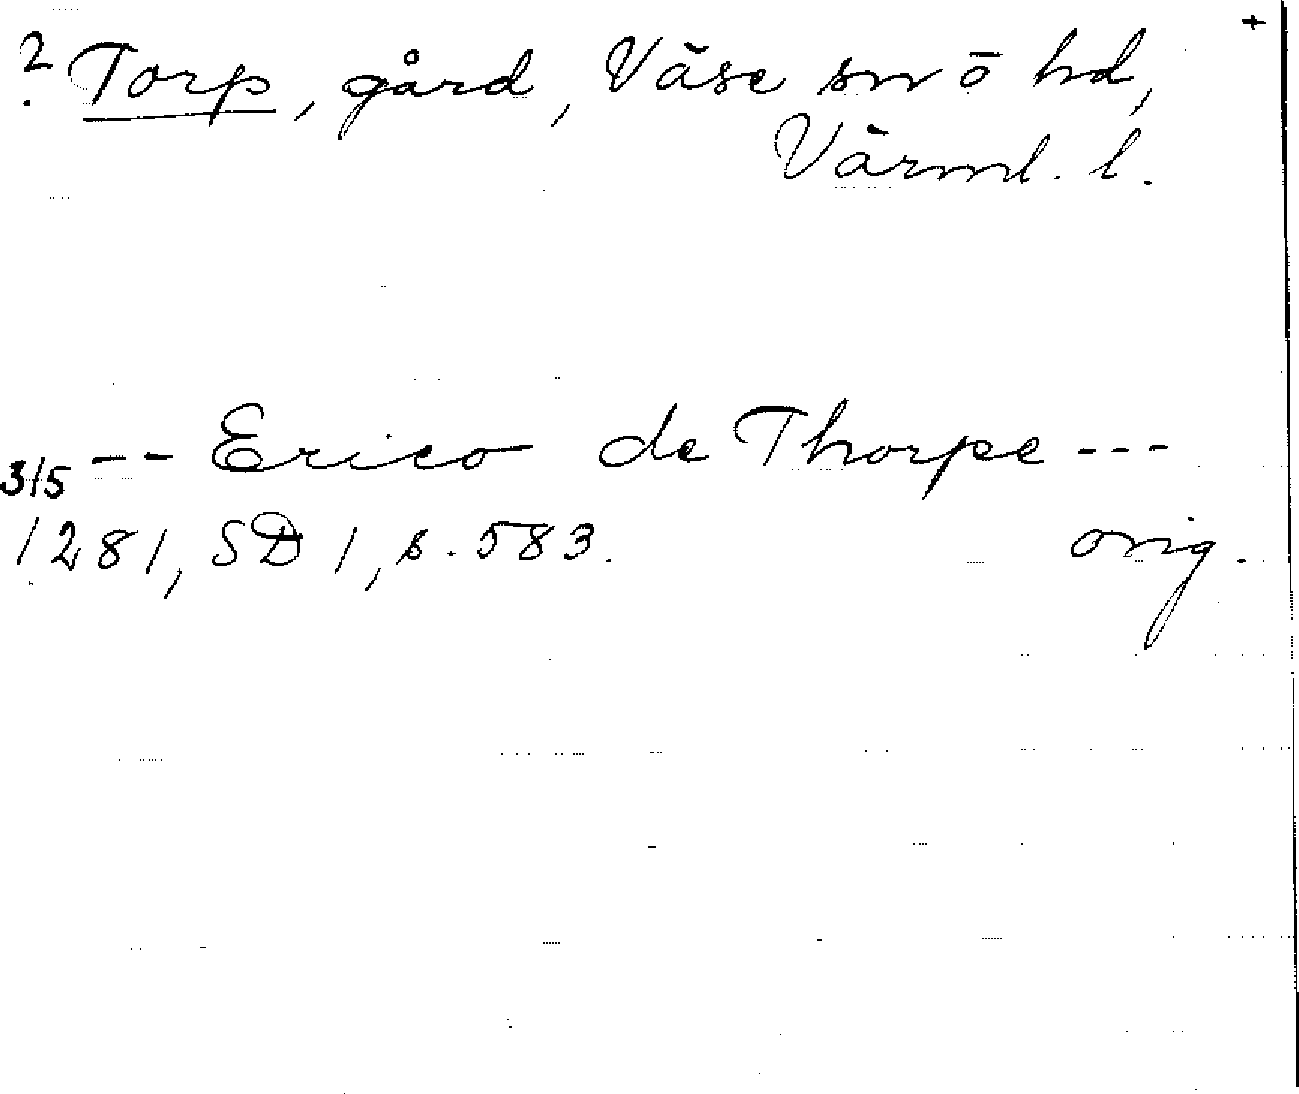 +
? Torp, gård, Väse sn o hd,
Värml. l.
-- Erico de Thorpe ---
3/5
1281, SD 1, s. 583. orig.